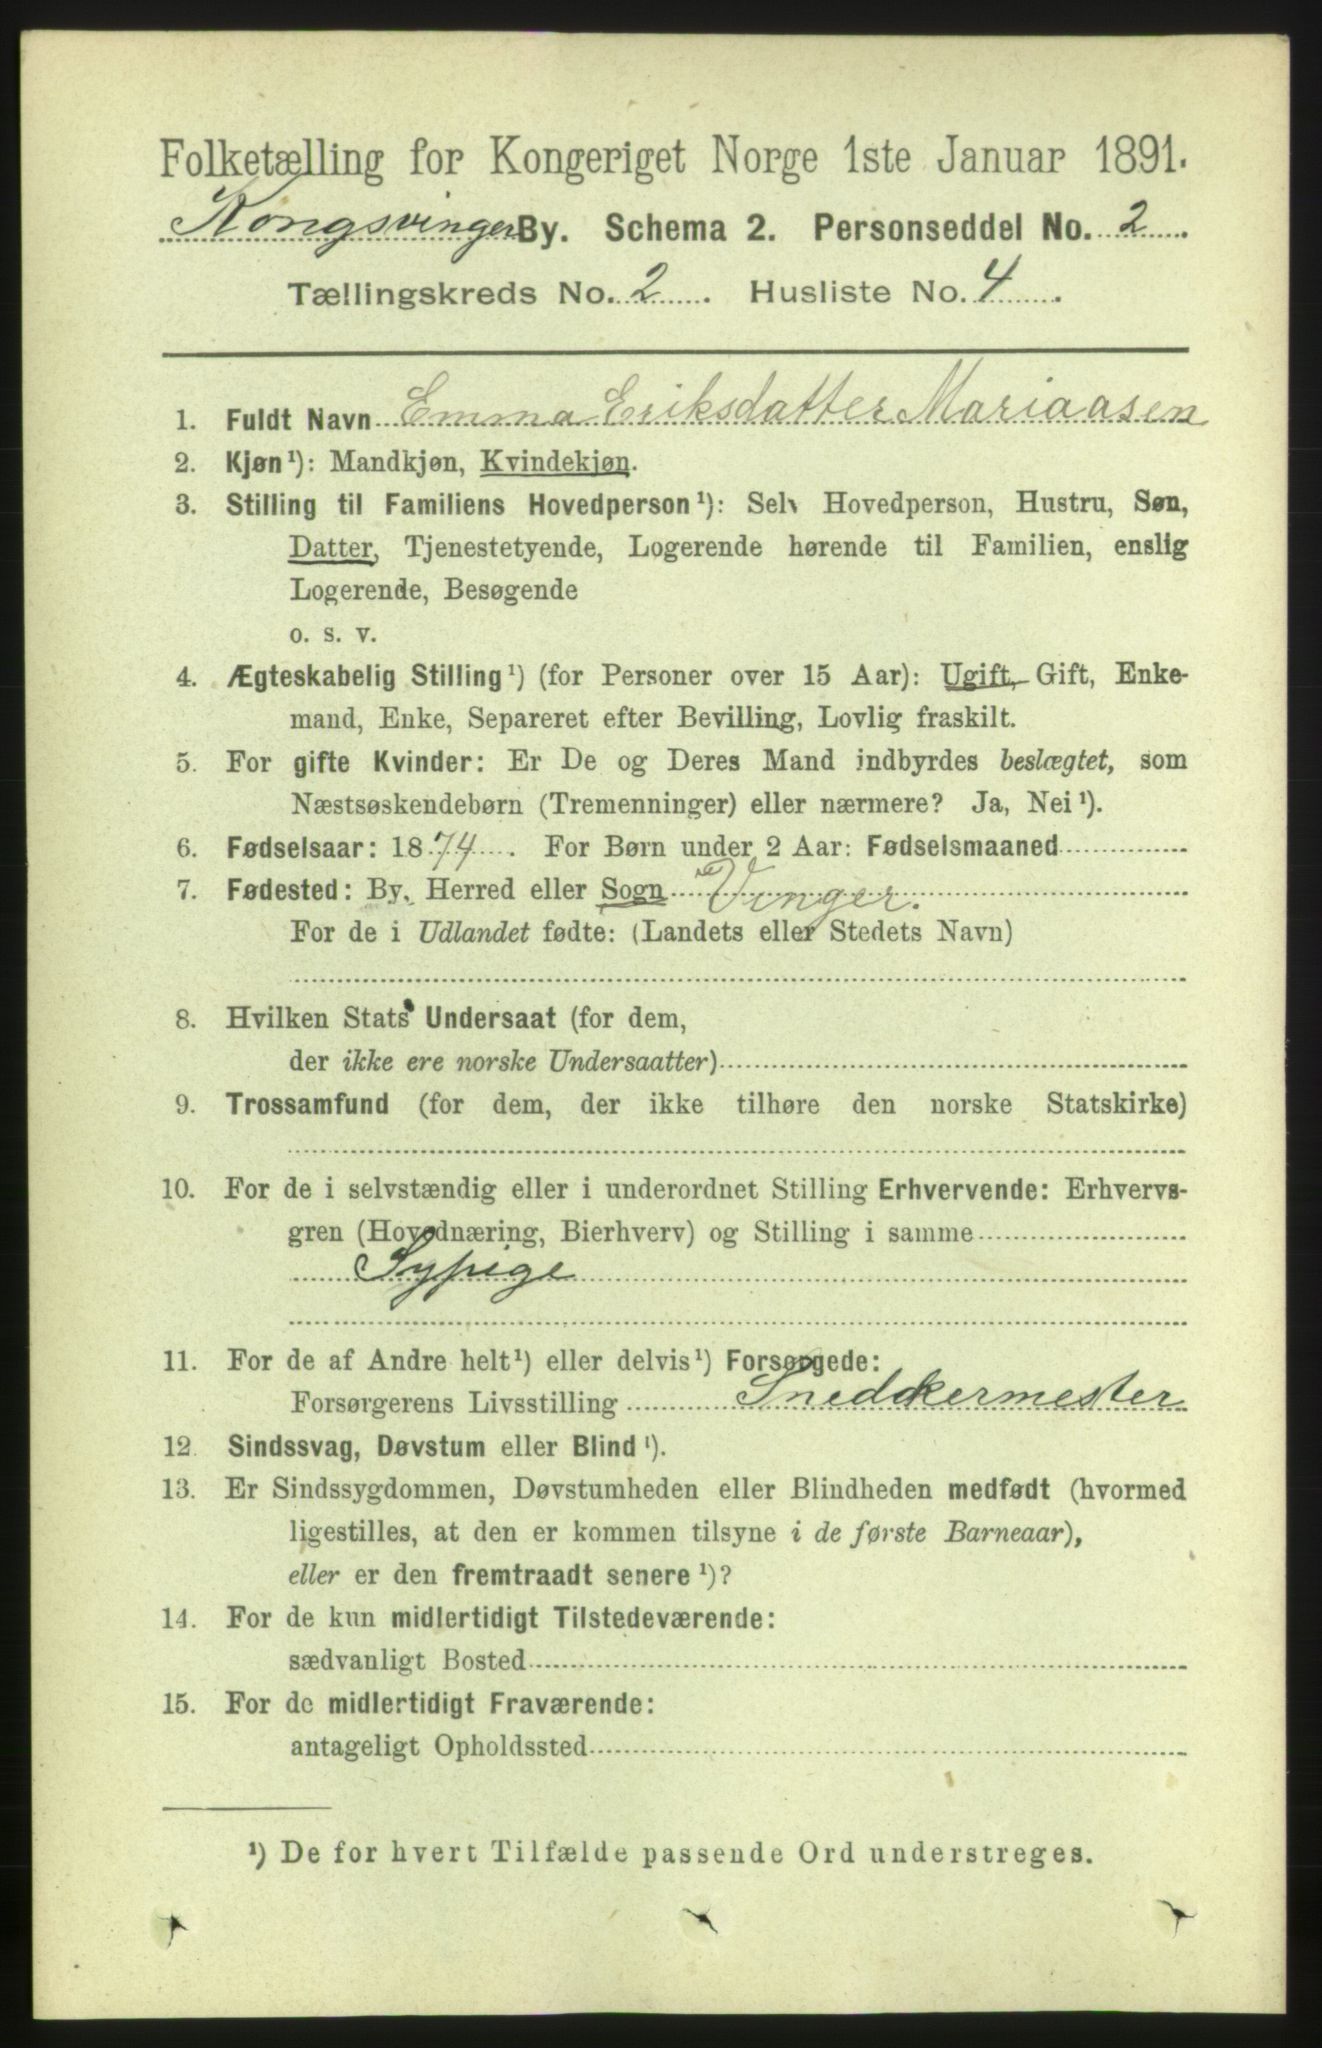 Folketælling for Kongeriget Norge 1ste Januar 1891.
Kongsvinger By. Schema 2. Personseddel No. 2
Tællingskreds No. 2. Husliste No. 4
1. Fuldt Navn Emma Eriksdatter Mariaasen
2. Kjøn¹): Mandkjøn, Kvindekjøn.
3. Stilling til Familiens Hovedperson¹): Selv Hovedperson, Hustru, Søn,
Datter, Tjenestetyende, Logerende hørende til Familien, enslig
Logerende, Besøgende
o. s. v.
4. Ægteskabelig Stilling¹) (for Personer over 15 Aar): Ugift, Gift, Enke-
mand, Enke, Separeret efter Bevilling, Lovlig fraskilt.
5. For gifte Kvinder: Er De og Deres Mand indbyrdes beslægtet, som
Næstsøskendebørn (Tremenninger) eller nærmere? Ja, Nei¹).
6. Fødselsaar: 1874. For Børn under 2 Aar: Fødselsmaaned
7. Fødested: By, Herred eller Sogn Vinger.
For de i Udlandet fødte: (Landets eller Stedets Navn)
8. Hvilken Stats Undersaat (for dem,
der ikke ere norske Undersaatter)
9. Trossamfund (for dem, der ikke tilhøre den norske Statskirke)
10. For de i selvstændig eller i underordnet Stilling Erhvervende: Erhvervs-
gren (Hovednæring, Bierhverv) og Stilling i samme
Sypige
11. For de af Andre helt¹) eller delvis¹) Forsørgede:
Forsørgerens Livsstilling Sneddkermester
12. Sindssvag, Døvstum eller Blind¹).
13. Er Sindssygdommen, Døvstumheden eller Blindheden medfødt (hvormed
ligestilles, at den er kommen tilsyne i de første Barneaar),
eller er den fremtraadt senere¹)?
14. For de kun midlertidigt Tilstedeværende:
sædvanligt Bosted
15. For de midlertidigt Fraværende:
antageligt Opholdssted
¹) De for hvert Tilfælde passende Ord understreges.